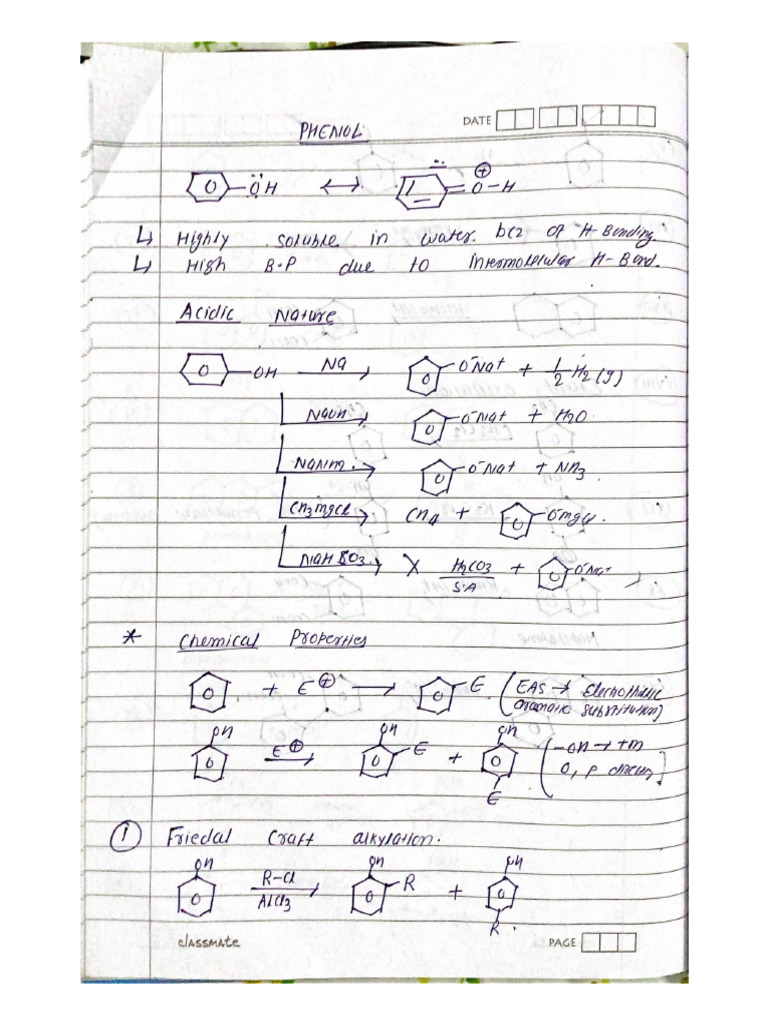 DATE
PHENOL
ÖH ↔ O-H
↳ Highly soluble in water bcz of H-Bonding.
↳ High B.P due to intermolecular H-Bond.
Acidic Nature
OH Na → O⁻Na⁺ + 1/2 H2(g)
NaOH → O⁻Na⁺ + H2O.
NaNH2 → O⁻Na⁺ + NH3.
CH3MgCl → CH4 + OMgCl.
NaHCO3 → X H2CO3 + O⁻Na⁺
S.A
* Chemical Properties
+ E⊕ → E. (EAS → Electrophilic
aromatic substitution)
OH E⊕ → OH E + OH E (-OH → +M
O, P
① Friedal Craft alkylation.
OH R-Cl → OH R + OH
AlCl3
R.
classmate PAGE